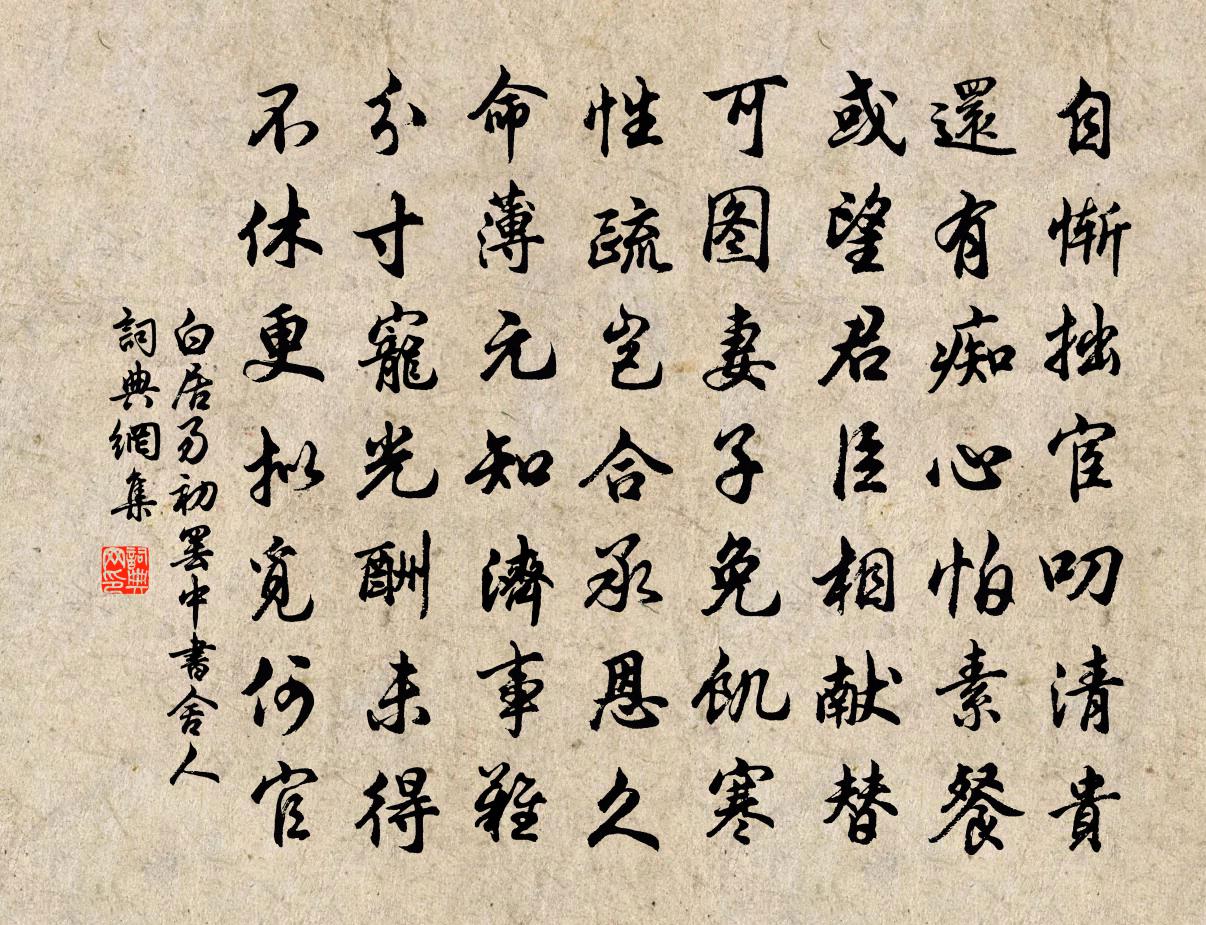 自慚拙宦叨清貴
還有痴心怕素餐
或望君臣相献替
可图妻子免飢寒
性疏岂合承恩久
命薄元知濟事難
分寸寵光酬未得
不休更拟覓何官
白居易初罢中書舍人
詞典網集
詞典网印